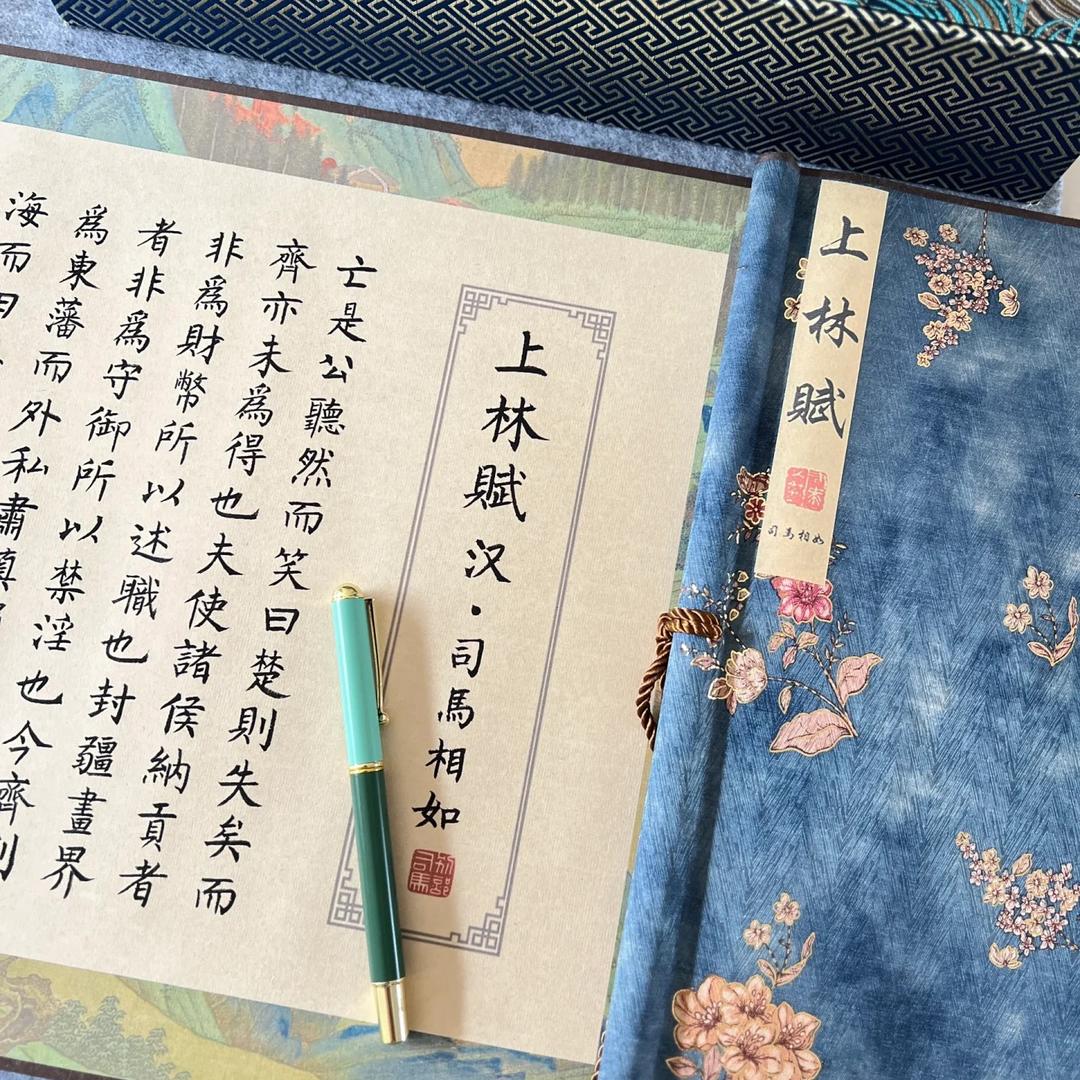 上林賦
司馬相如
上林賦 汉·司馬相如
別部司馬
亡是公聽然而笑曰楚則失矣而
齊亦未爲得也夫使諸侯納貢者
非爲財幣所以述職也封疆畫界
者非爲守御所以禁淫也今齊列
爲東藩而外私肅慎
海而田